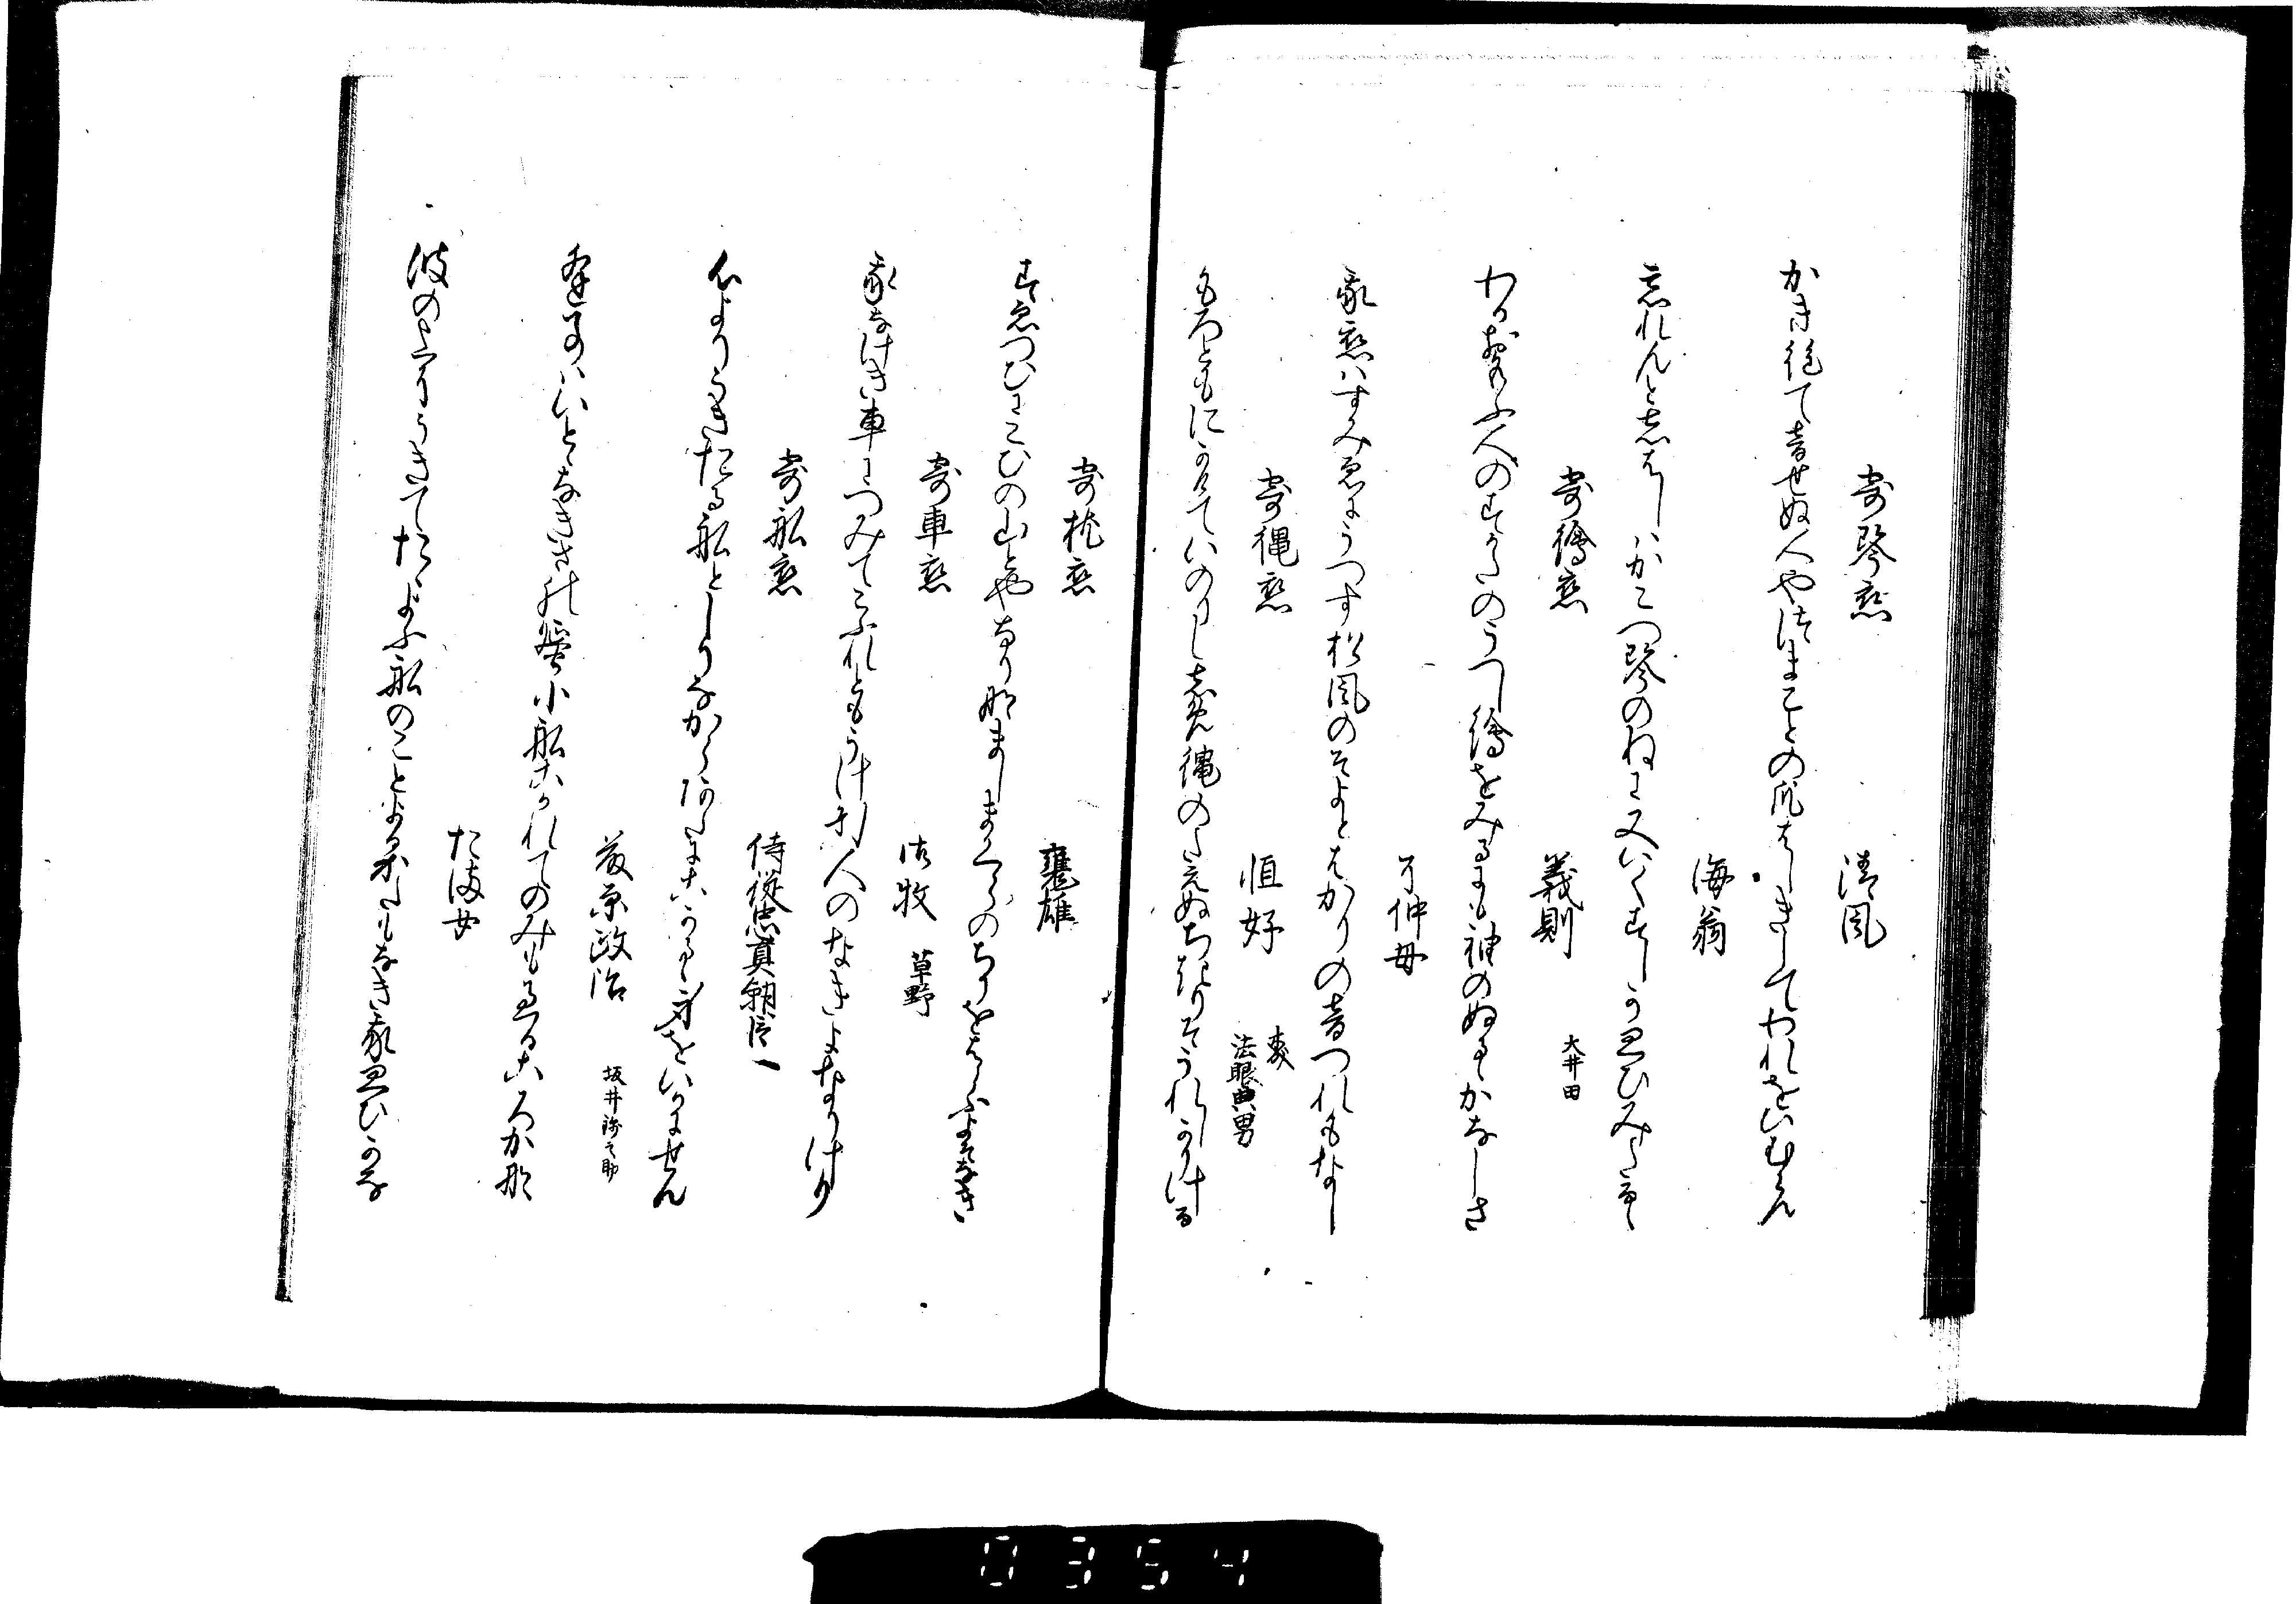 寄琴恋
清風
かき絶て音せぬ人やつまことの爪はしきしてわれをいむらん
海翁
忘れんと志はしはかこつ琴のねに又いくすしか思ひみたるゝ
寄絵恋
義則 大井田
わかおもふ人のすかたのうつし絵をみるにも袖のぬるゝかなしさ
子仲母
我恋はすみゑにうつす松風のそよとはかりの音つれもなし
寄縄恋
恒好 法眼典男
もろともにかけていのりししめ縄のたえぬちきりそうれしかりける
寄枕恋
竈雄
すゑつひにこひの山とやなり那ましまくらのちりをはらふよそなき
寄車恋
御牧 草野
我なけき車につみてこふれともうけ引人のなきよなりけり
寄船恋
侍従忠真朝臣
人よりうきたる船としりなからあたにこかるゝ身をいかにせん
藤原政治 坂井
逢事はいとゝなきさの蜑小船こかれてのみもよるこゝろか那
たま女
波のよりうきてたゝよふ船のことよるかたもなき我思ひかな
0354